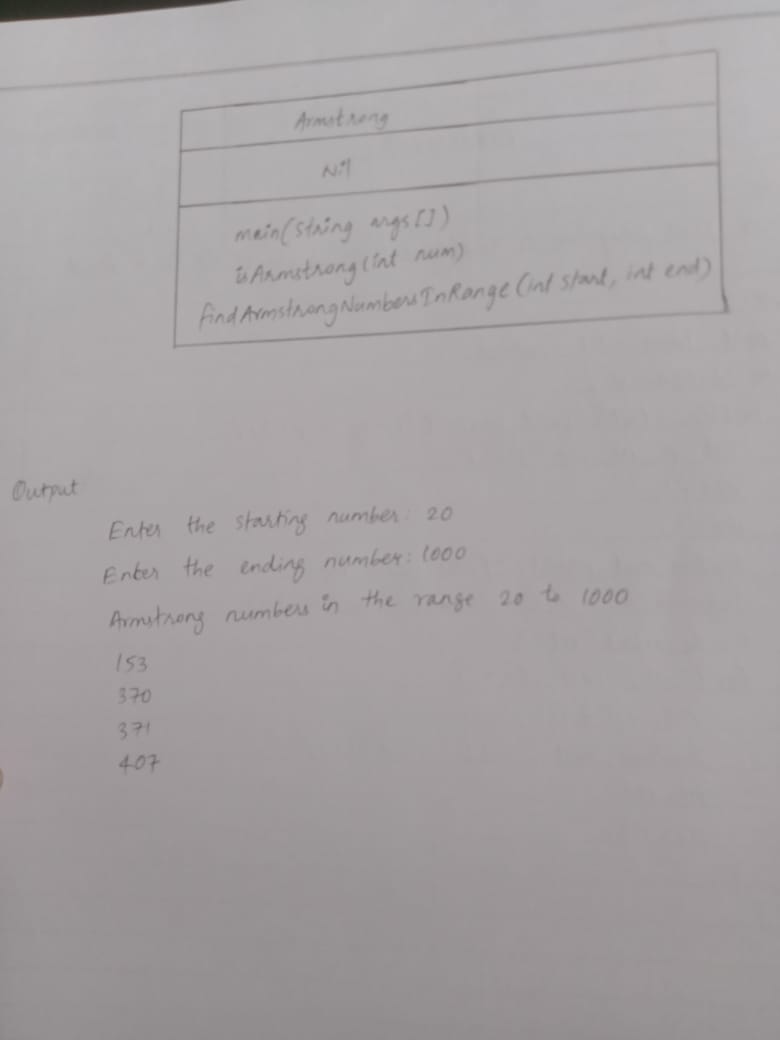 Armstrong
Nil
main(String args[])
isArmstrong(int num)
findArmstrongNumbersInRange(int start, int end)
Output
Enter the starting number: 20
Enter the ending number: 1000
Armstrong numbers in the range 20 to 1000
153
370
371
407